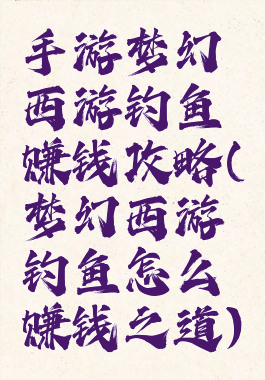 手游梦幻
西游钓鱼
赚钱攻略(
梦幻西游
钓鱼怎么
赚钱之道)